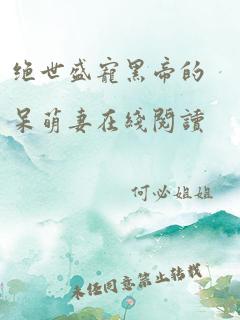 绝世盛寵黑帝的
呆萌妻在綫閱讀
何必姐姐
未经同意禁止转载